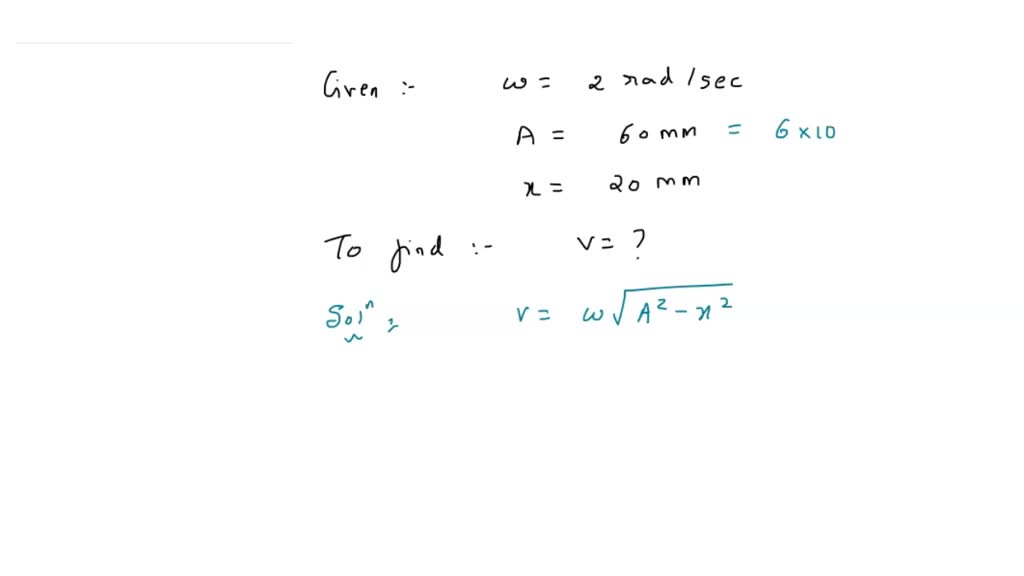 Given :- ω = 2 rad/sec
A = 60 mm = 6 × 10
x = 20 mm
To find :- v = ?
Solⁿ :, v = ω√A² - x²